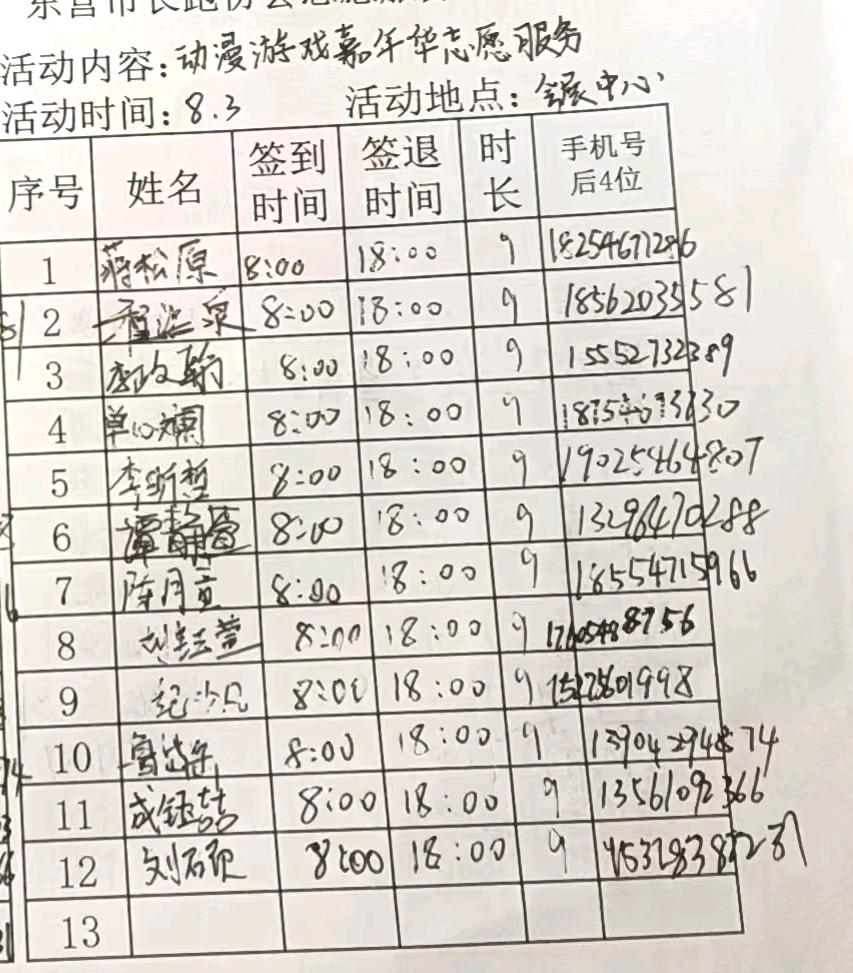 活动内容:动漫游戏嘉年华志愿服务
活动时间:8.3 活动地点:会展中心
序号 姓名 签到时间 签退时间 时长 手机号后4位
1 蒋松原 8:00 18:00 9 18254677286
2 8:00 18:00 9 18562035581
3 8:00 18:00 9 15552732389
4 8:00 18:00 9
5 李昕哲 8:00 18:00 9 19025464807
6 谭静萱 8:00 18:00 9 13296470288
7 陈月宣 8:00 18:00 9 18554715966
8 刘钰萱 8:00 18:00 9 17605488756
9 8:00 18:00 9 15275601998
10 8:00 18:00 9
11 成钰喆 8:00 18:00 9 13561092366
12 刘石硕 8:00 18:00 9
13